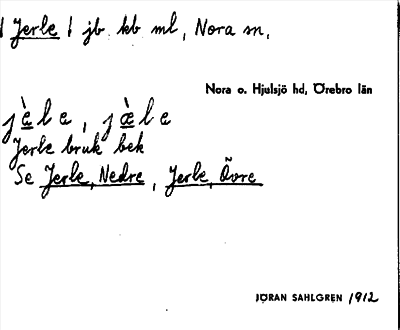 Jerle jb kb ml, Nora sn,
Nora o. Hjulsjö hd, Örebro län
jèle, jæ̀le
Jerle bruk bek
Se Jerle, Nedre, Jerle, Övre
JÖRAN SAHLGREN 1912